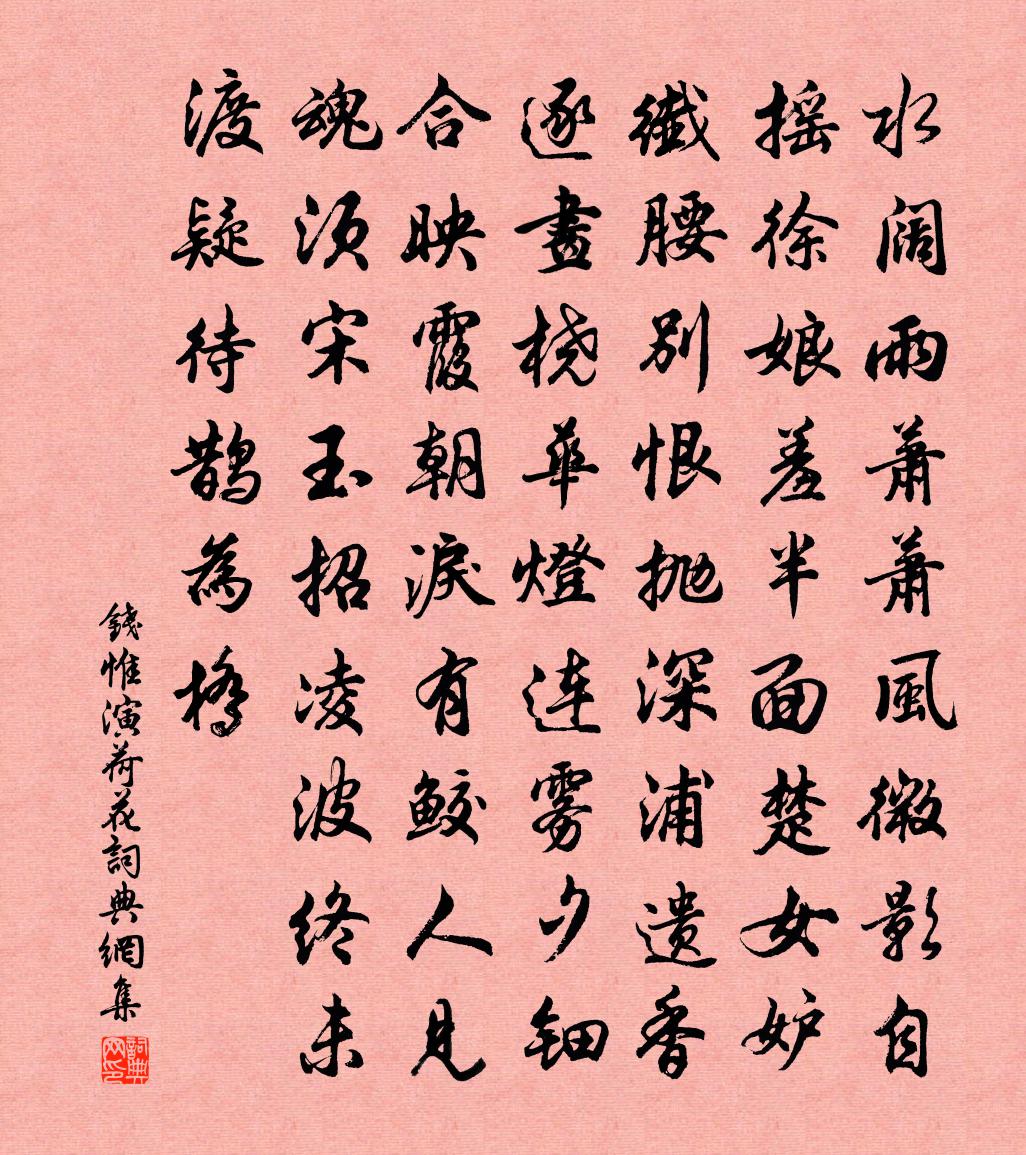 水阔雨萧萧風微影自
摇徐娘羞半面楚女妒
纖腰别恨抛深浦遗香
逐畫桡華燈连雾夕钿
合映霞朝淚有鲛人見
魂须宋玉招凌波终未
渡疑待鹊為橋
錢惟演荷花詞典網集
詞典网印